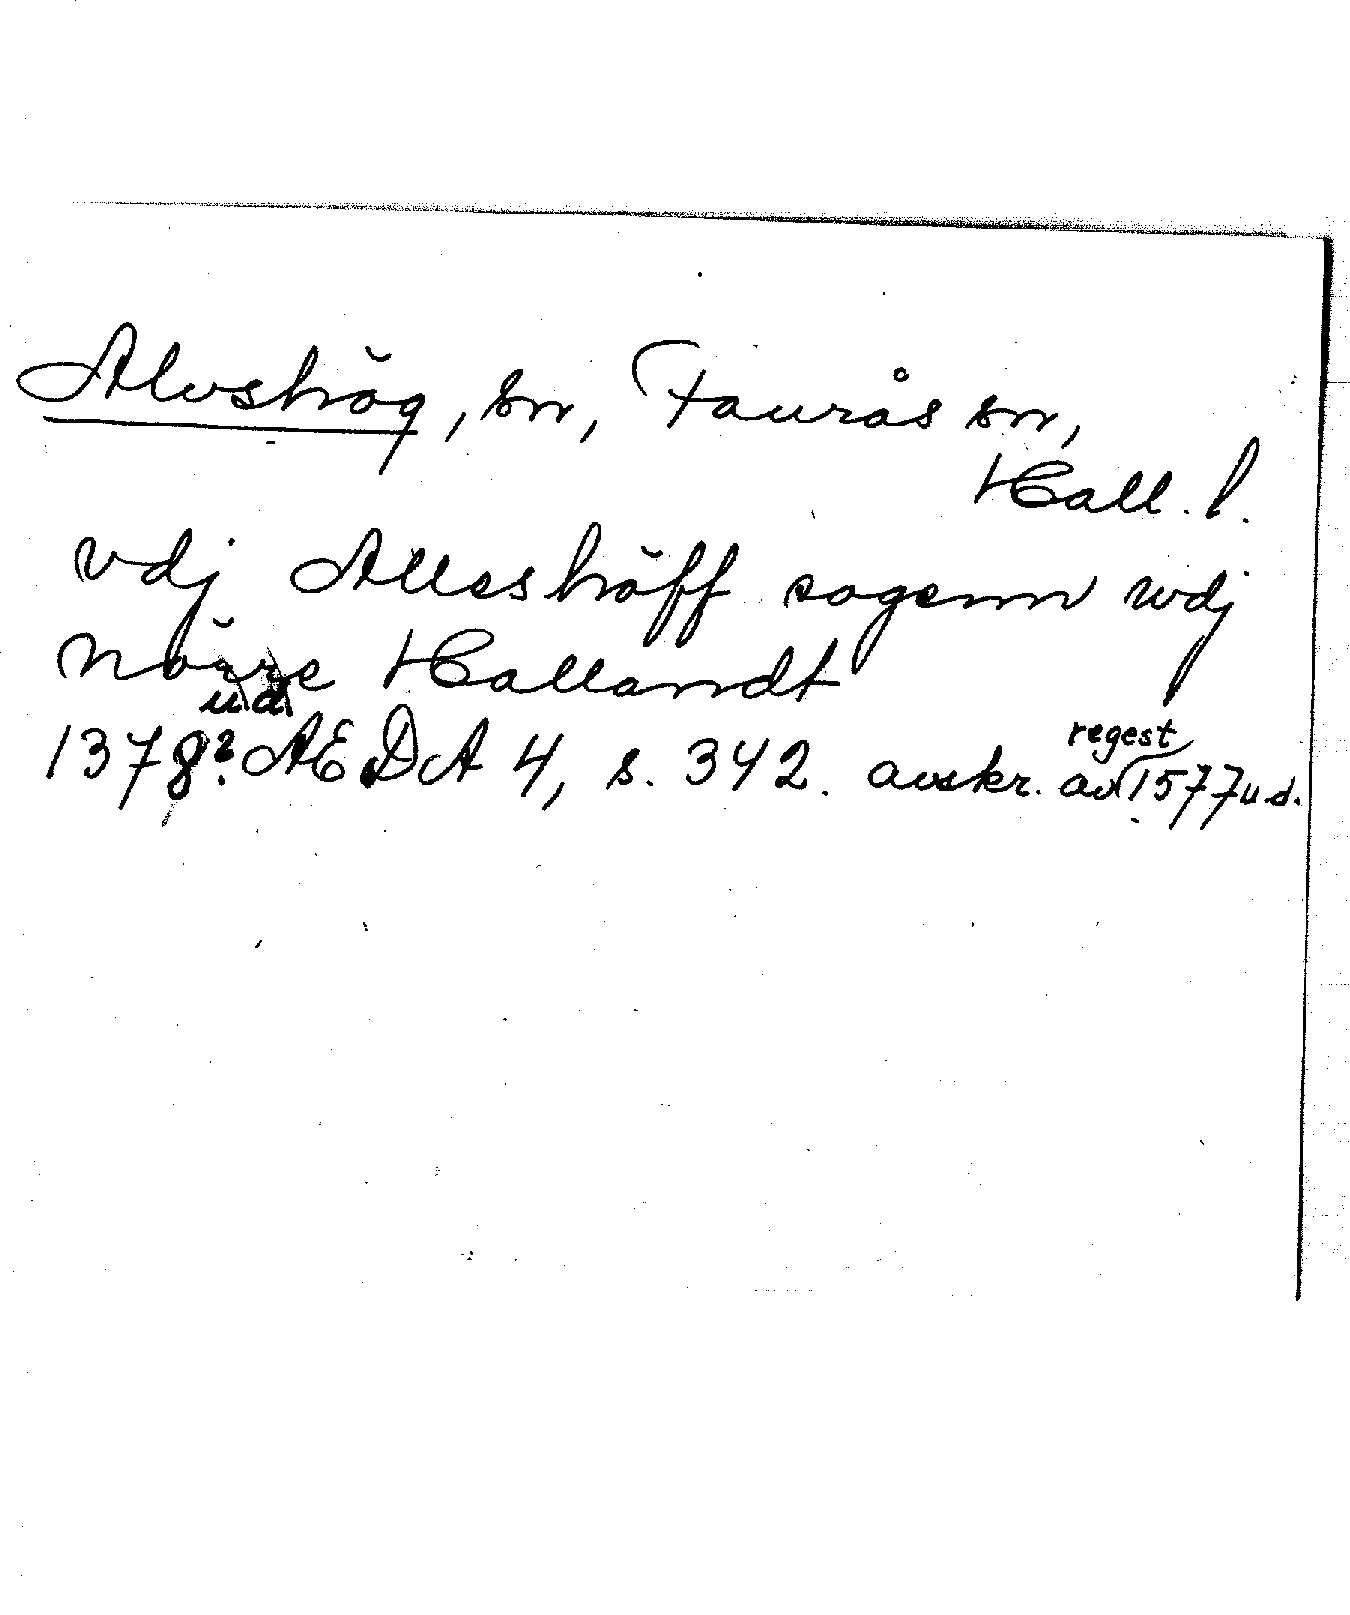 Alvshög, sn, Faurås sn,
Hall. l.
vdj Alleshöff sogenn wdj
nörre Hallandt
u.d.
1378? AEDA 4, s. 342. avskr. av regest 1577 u.d.